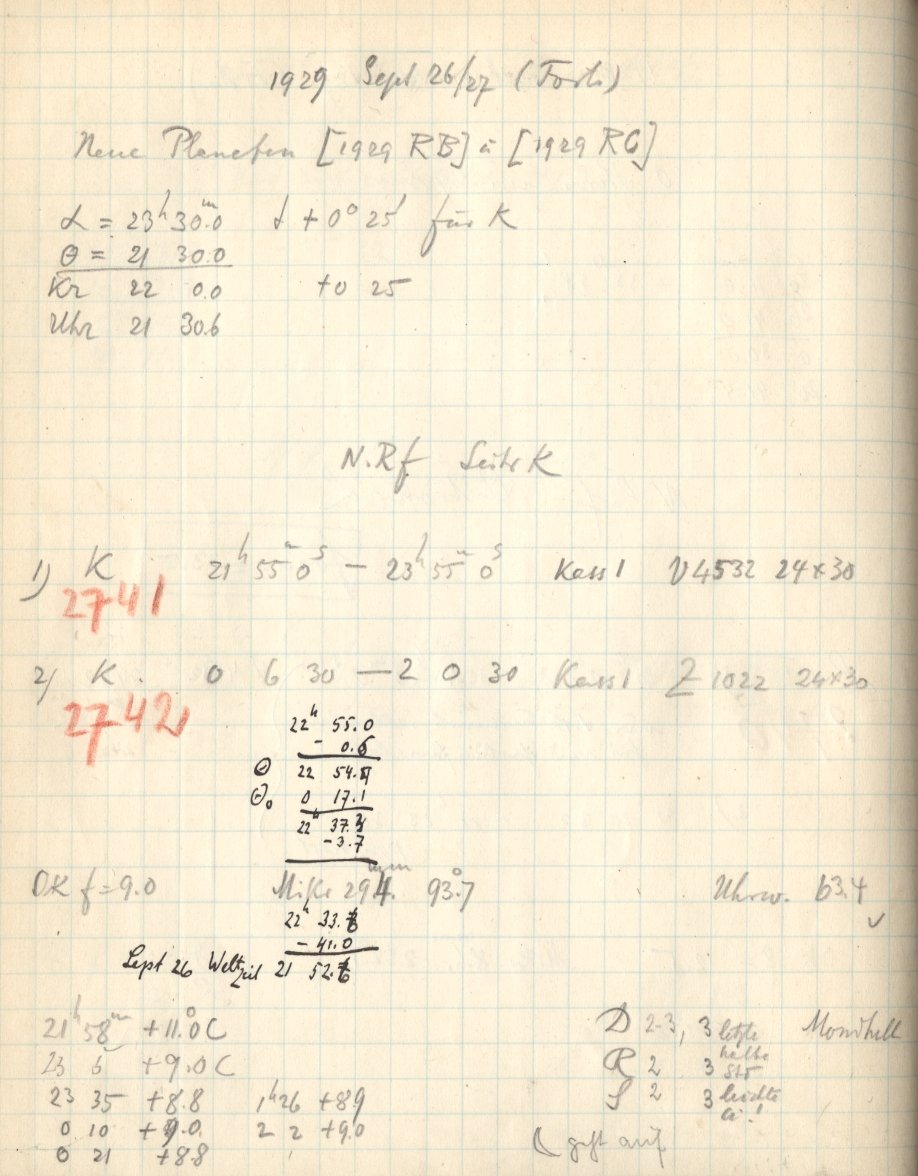 1929 Sept 26/27 (Forts)
Neue Planeten [1929 RB] u [1929 RC]
α = 23h 30.0m δ + 0° 25' für K
θ = 21 30.0
Kr 22 0.0 +0 25
Uhr 21 30.6
N.Rf Seite K
1) K 21h 55m 0s – 23h 55m 0s Kass 1 V4532 24×30
2741
2) K. 0 6 30 – 2 0 30 Kass 1 Z 1022 24×30
2742
22h 55.0
- 0.6
Θ 22 54.4
Θ₀ 0 17.1
22h 37.3
-3.7
OK f = 9.0 Mike 294.mm 93°.7 Uhrw. 63.4
22h 33.6
- 41.0
Sept 26 Weltzeit 21 52.6
21h 58m +11.0°C D 2-3, 3 letzte Mondhell
23 6 +9.0C R 2 3 halbe Std
23 35 +8.8 1h 26 +8.9 S 2 3 leichte
0 10 +9.0 2 2 +9.0
0 21 +8.8 ☾ geht auf